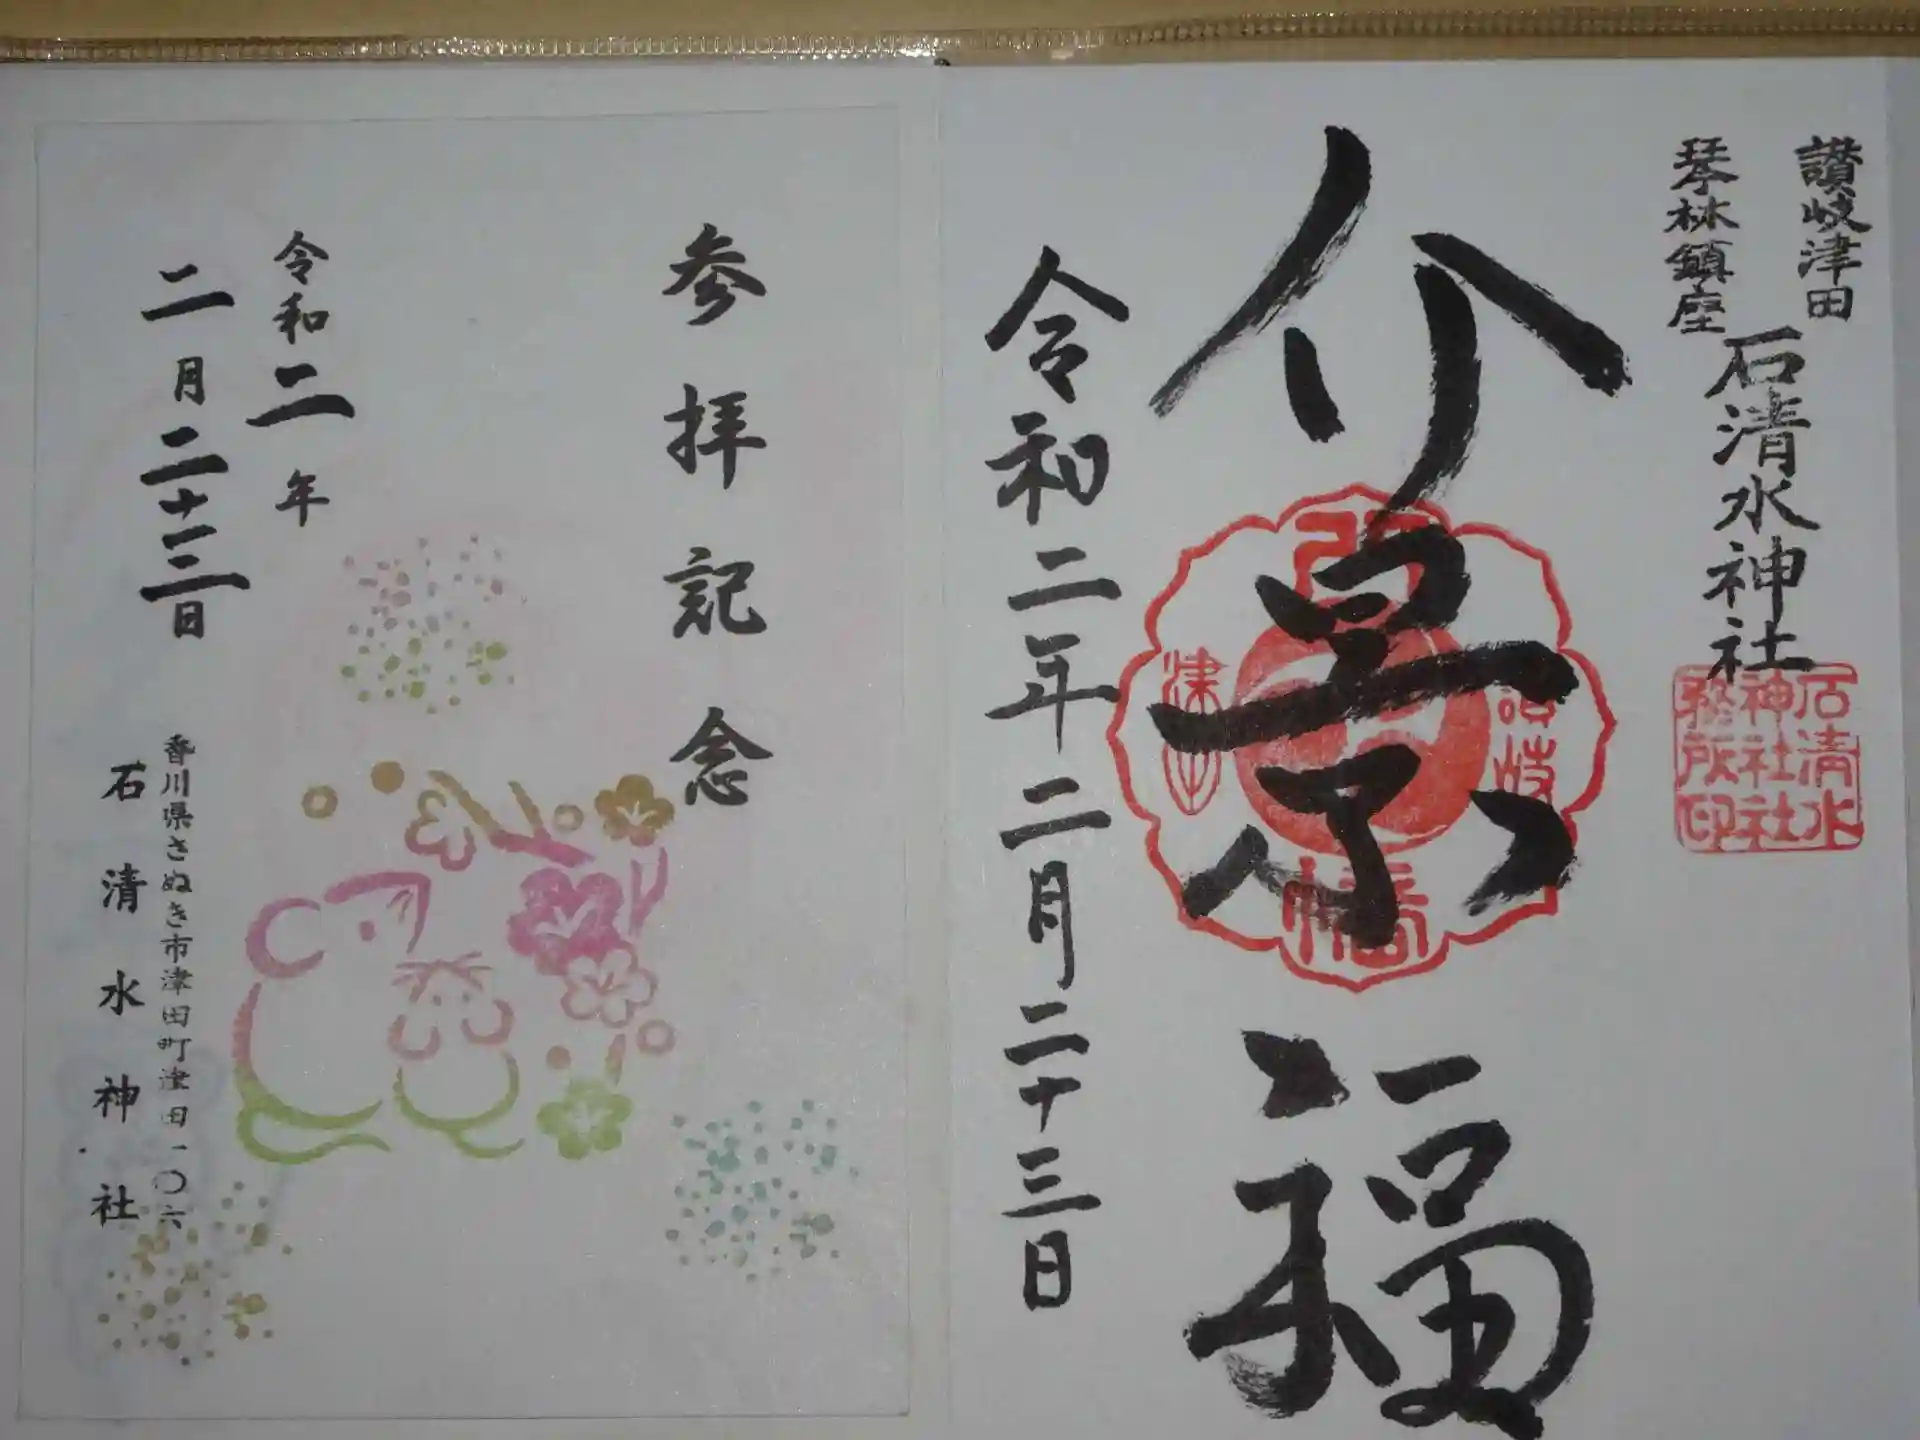 讃岐津田
琴林鎮座
石清水神社
石清水
神社社
務所印
介景福
讃岐
津田
八
幡
令和二年二月二十三日
参拝記念
令和二年
二月二十三日
香川県さぬき市津田町津田一〇六
石清水神社